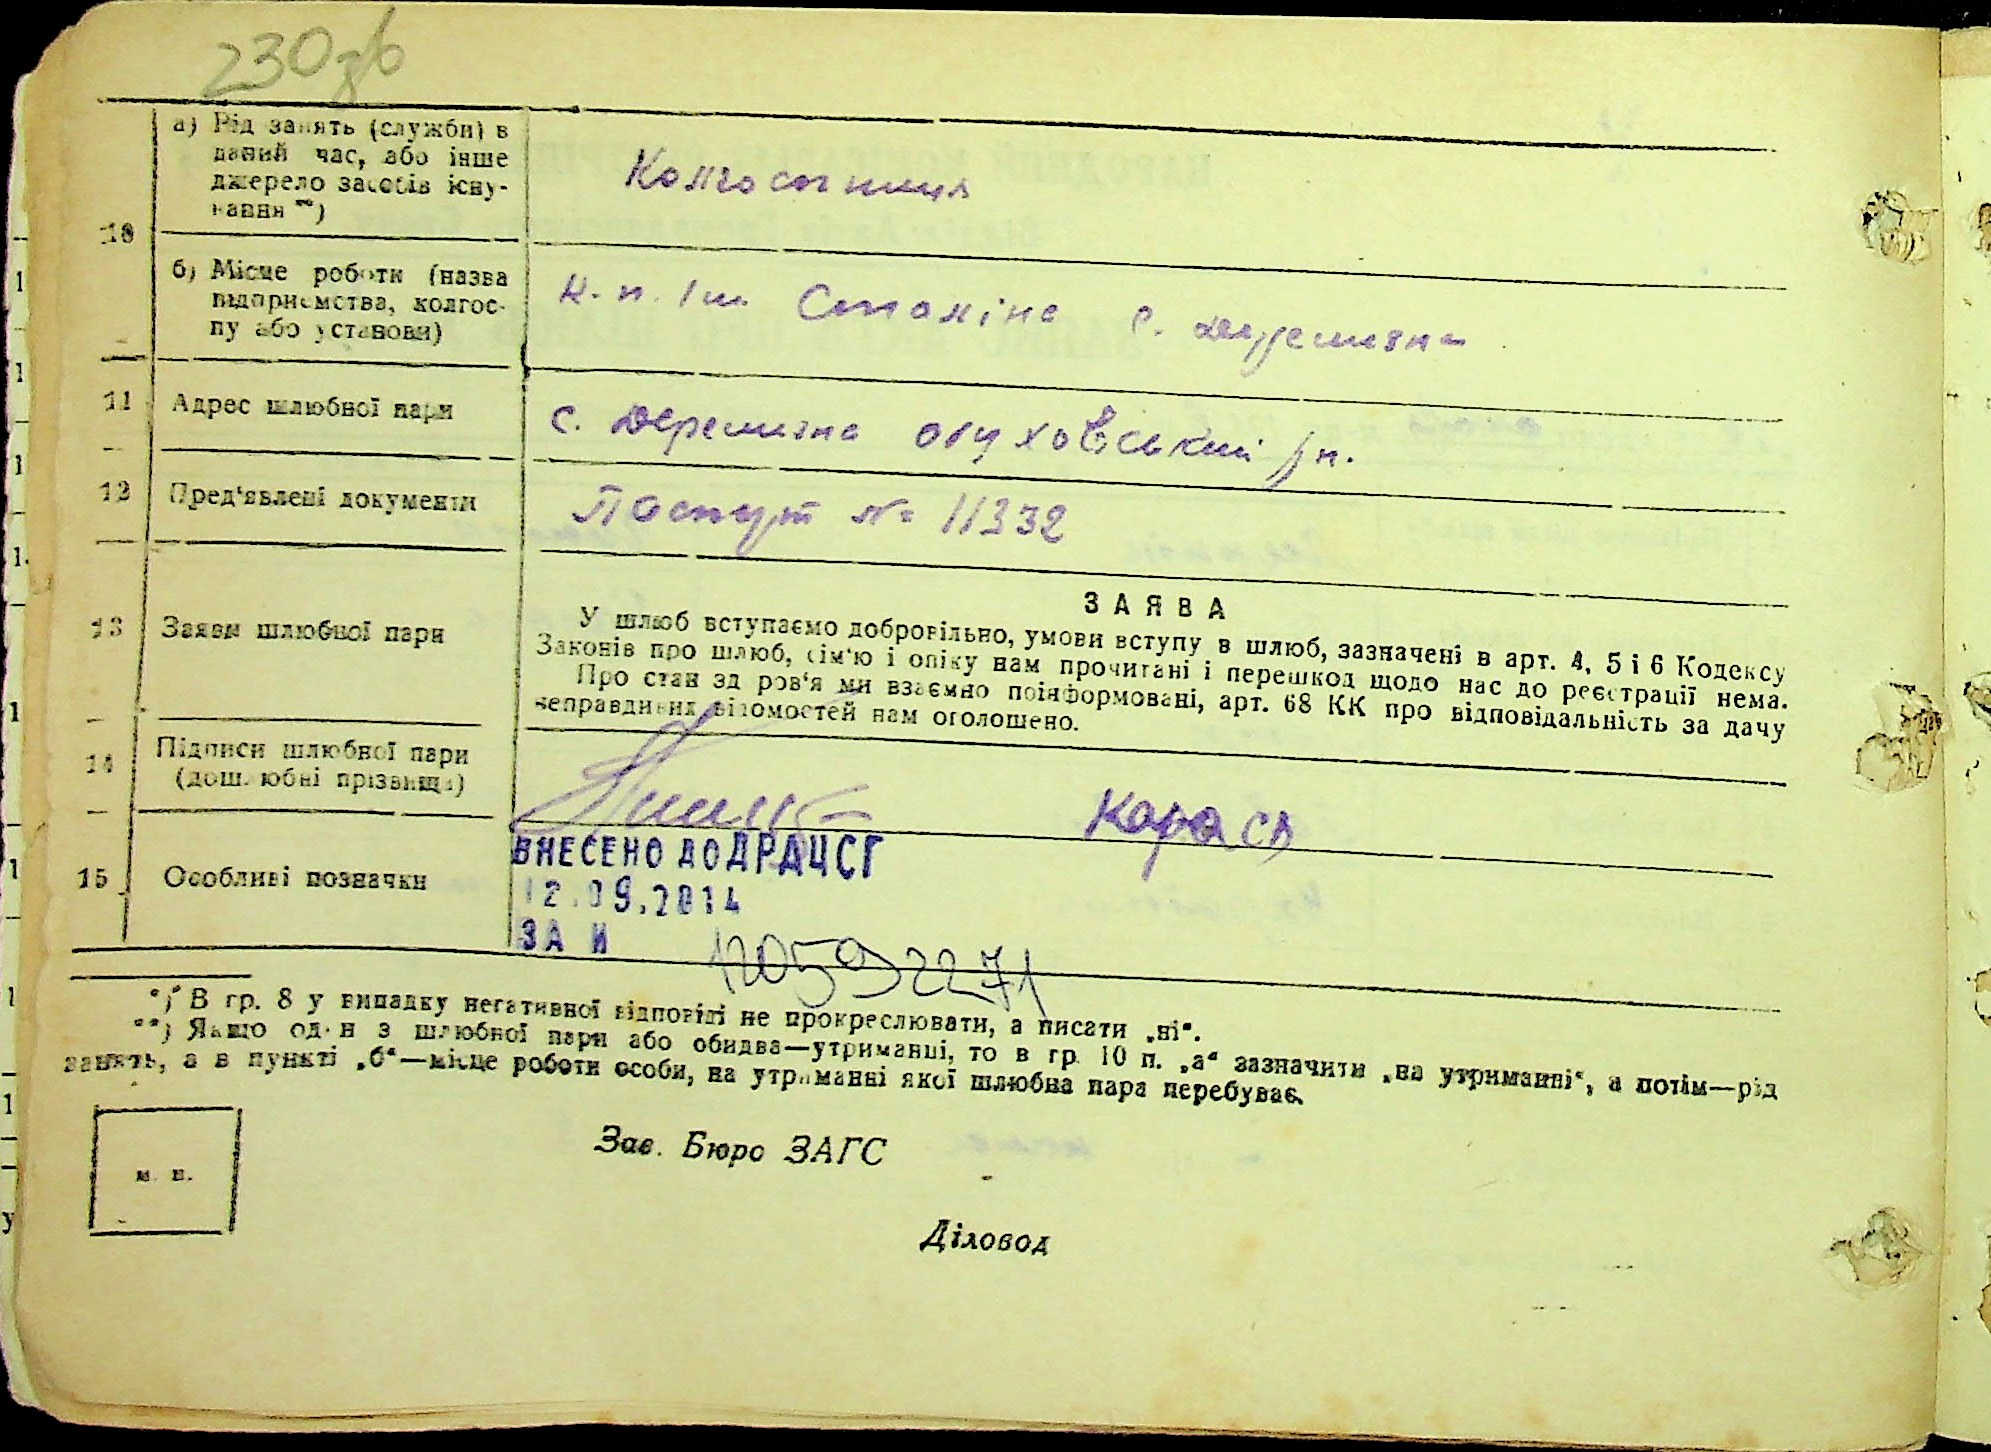 230зв
а) Рід занять (служби) в
даний час, або інше
джерело засобів існу-
вання **)
Колгоспниця
10
б) Місце роботи (назва
підприємства, колгос-
пу або установи)
К. п. Ім Сталіна с. Деремезна
11 Адрес шлюбної пари
с. Деремезна Обуховський рн.
12 Пред'явлені документи
Паспорт № 11332
13 Заяви шлюбної пари
ЗАЯВА
У шлюб вступаємо добровільно, умови вступу в шлюб, зазначені в арт. 4, 5 і 6 Кодексу
Законів про шлюб, сім'ю і опіку нам прочитані і перешкод щодо нас до реєстрації нема.
Про стан здоров'я ми взаємно поінформовані, арт. 68 КК про відповідальність за дачу
неправдивих відомостей нам оголошено.
14 Підписи шлюбної пари
(дошлюбні прізвища)
Карась
15 Особливі позначки
ВНЕСЕНО ДО ДРАЦСГ
12.09.2014
ЗА №
120592271
*) В гр. 8 у випадку негативної відповіді не прокреслювати, а писати „ні“.
**) Якщо один з шлюбної пари або обидва—утриманці, то в гр. 10 п. „а“ зазначити „на утриманні“, а потім—рід
занять, а в пункті „б“—місце роботи особи, на утриманні якої шлюбна пара перебуває.
м. п.
Зав. Бюро ЗАГС
Діловод